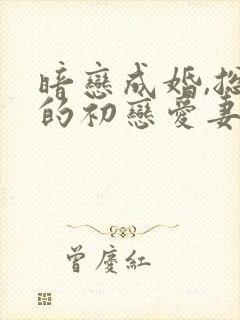 暗戀成婚,總
的初戀愛妻
曾慶紅